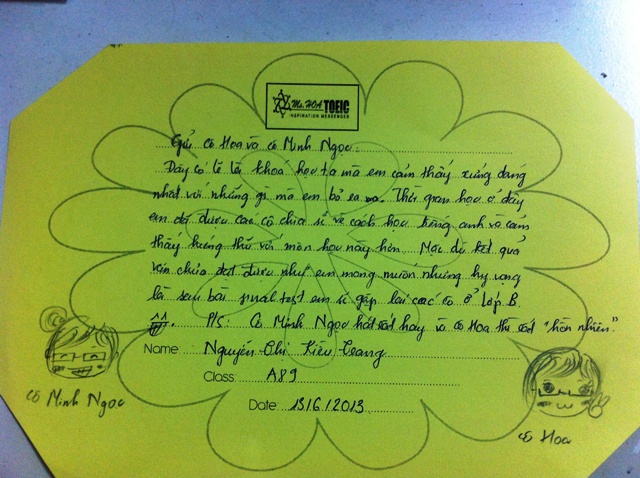 Ms. HOA TOEIC
INSPIRATION MESSENGER
Gửi cô Hoa và cô Minh Ngọc.
Đây có lẽ là khoá học mà em cảm thấy xứng đáng
nhất với những gì mà em bỏ ra. Thời gian học ở đây
em đã được các cô chia sẻ về cách học tiếng anh và cảm
thấy hứng thú với môn học này hơn. Mặc dù kết quả
vẫn chưa đạt được như em mong muốn nhưng hy vọng
là sau bài final test em sẽ gặp lại các cô ở lớp B
^^. P/S: Cô Minh Ngọc hát rất hay và cô Hoa thì rất "hồn nhiên".
Name Nguyễn Thị Kiều Trang
Class A89
Date 13/6/2013
cô Minh Ngọc
cô Hoa